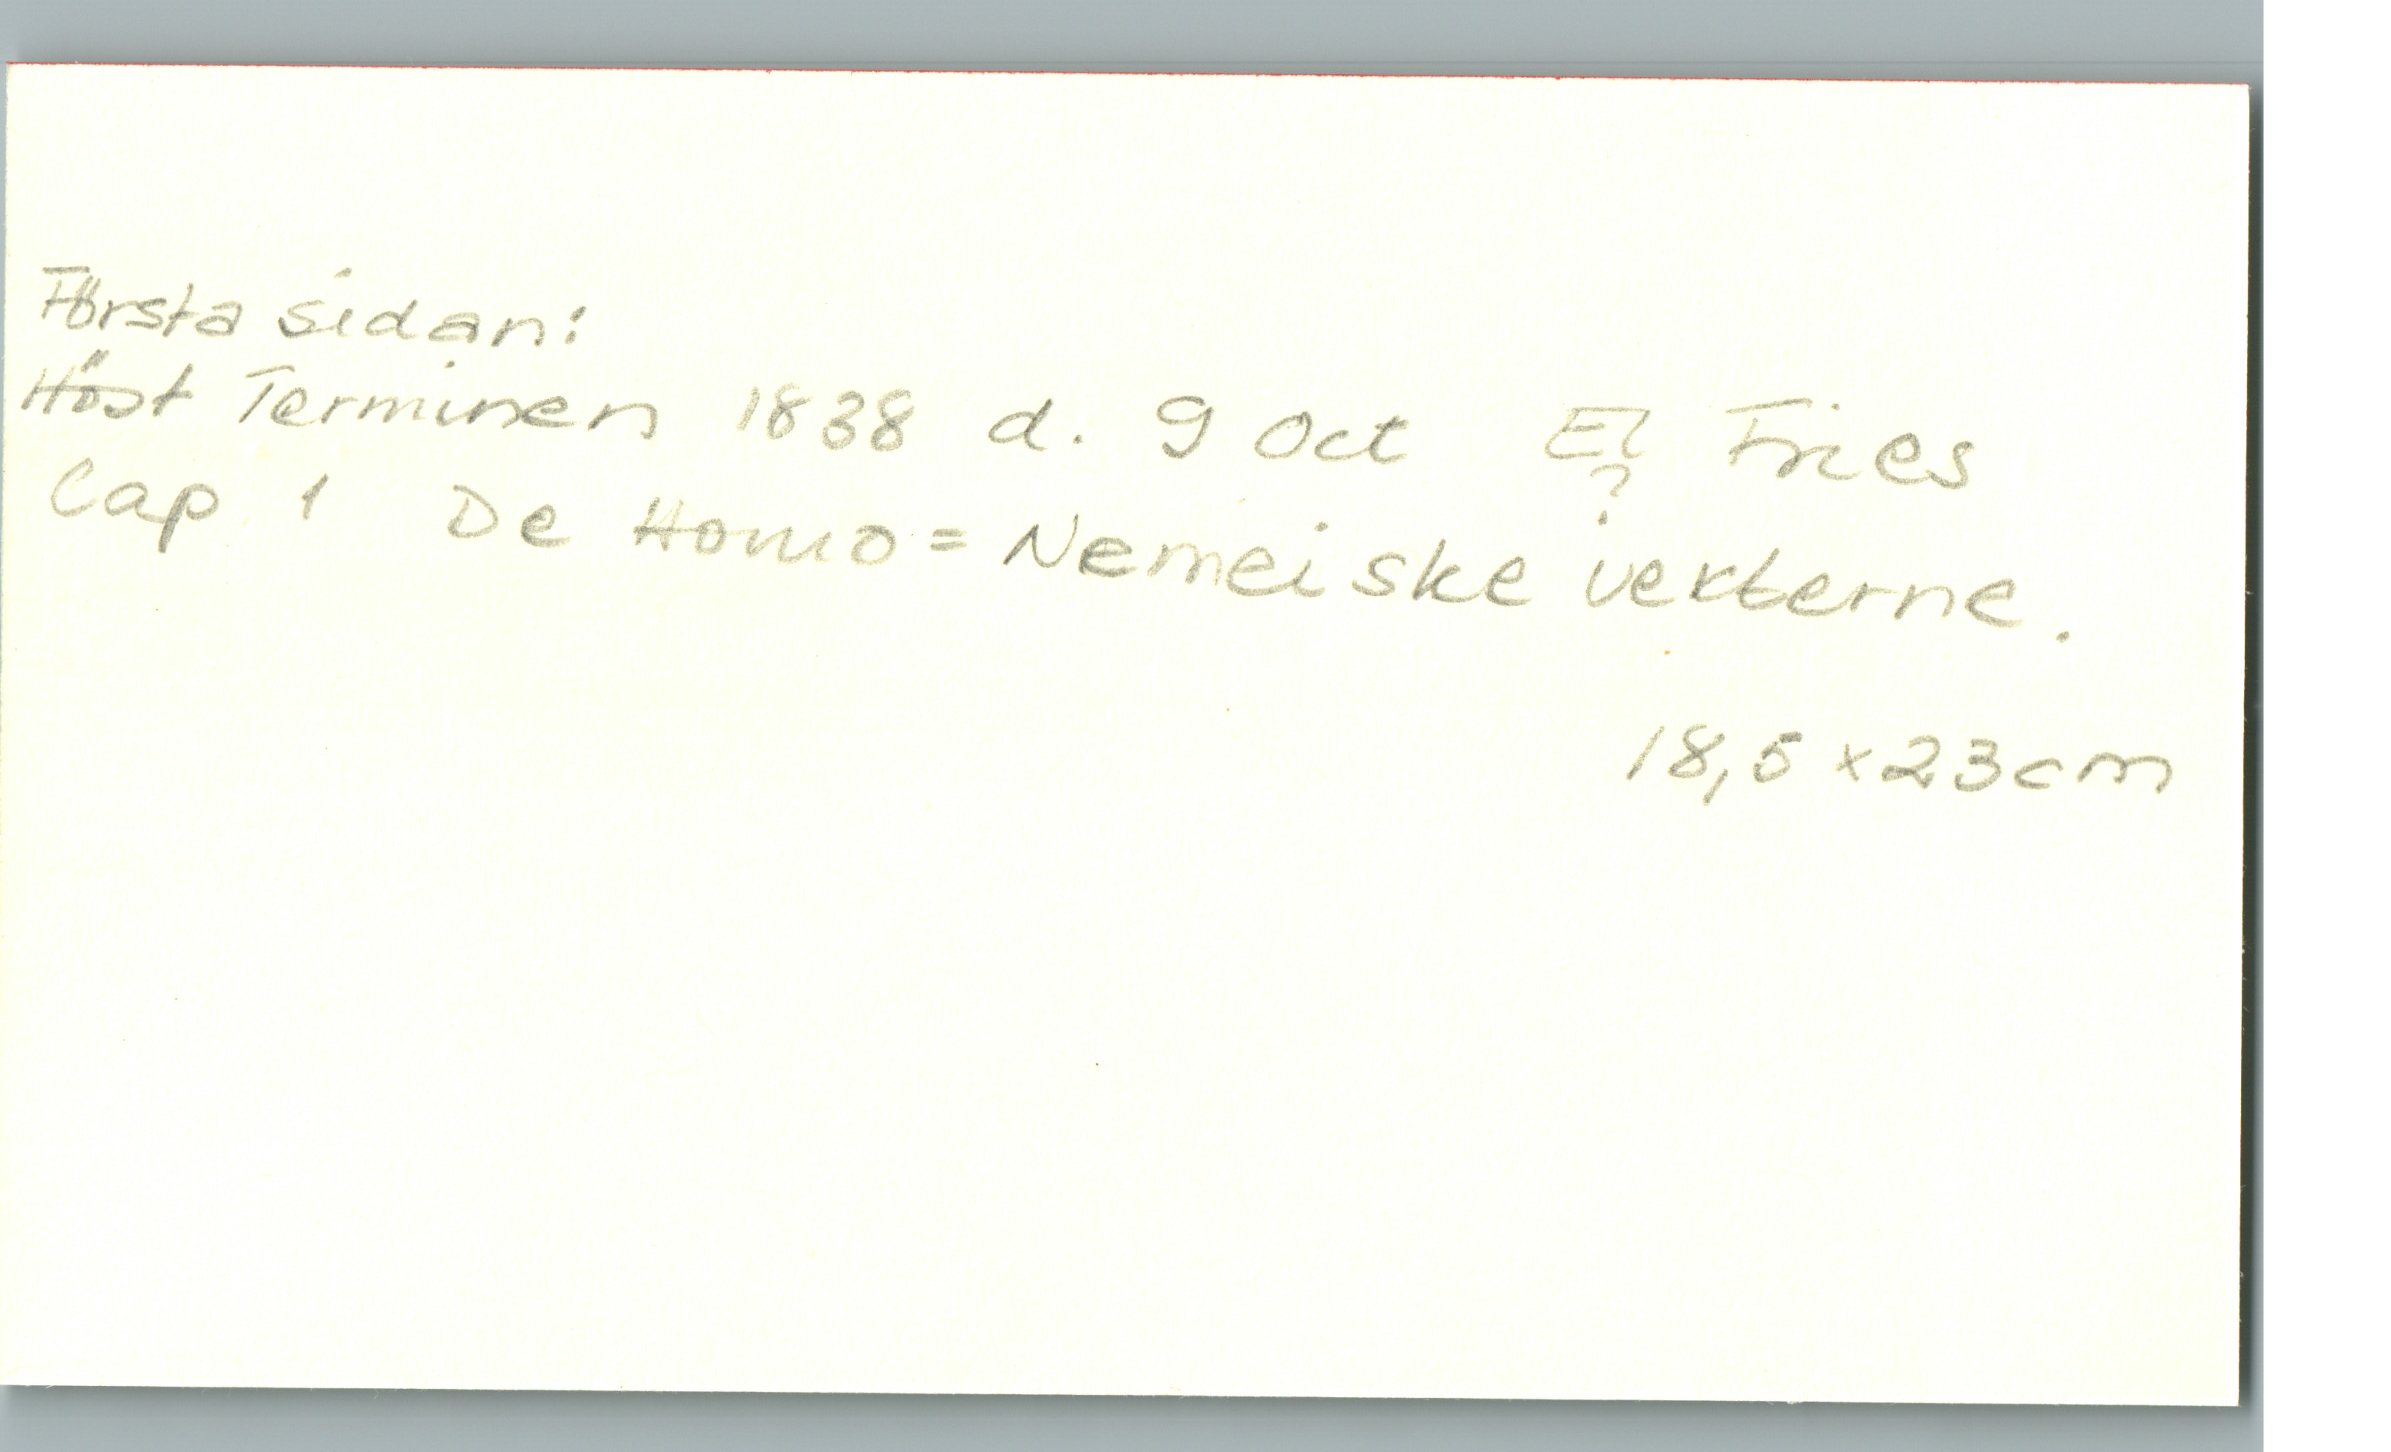 Första sidan:
Höst Terminen 1838 d. 9 Oct El Fries
?
Cap 1 De Homo = Nemeiske vexterne.
18,5 x 23 cm